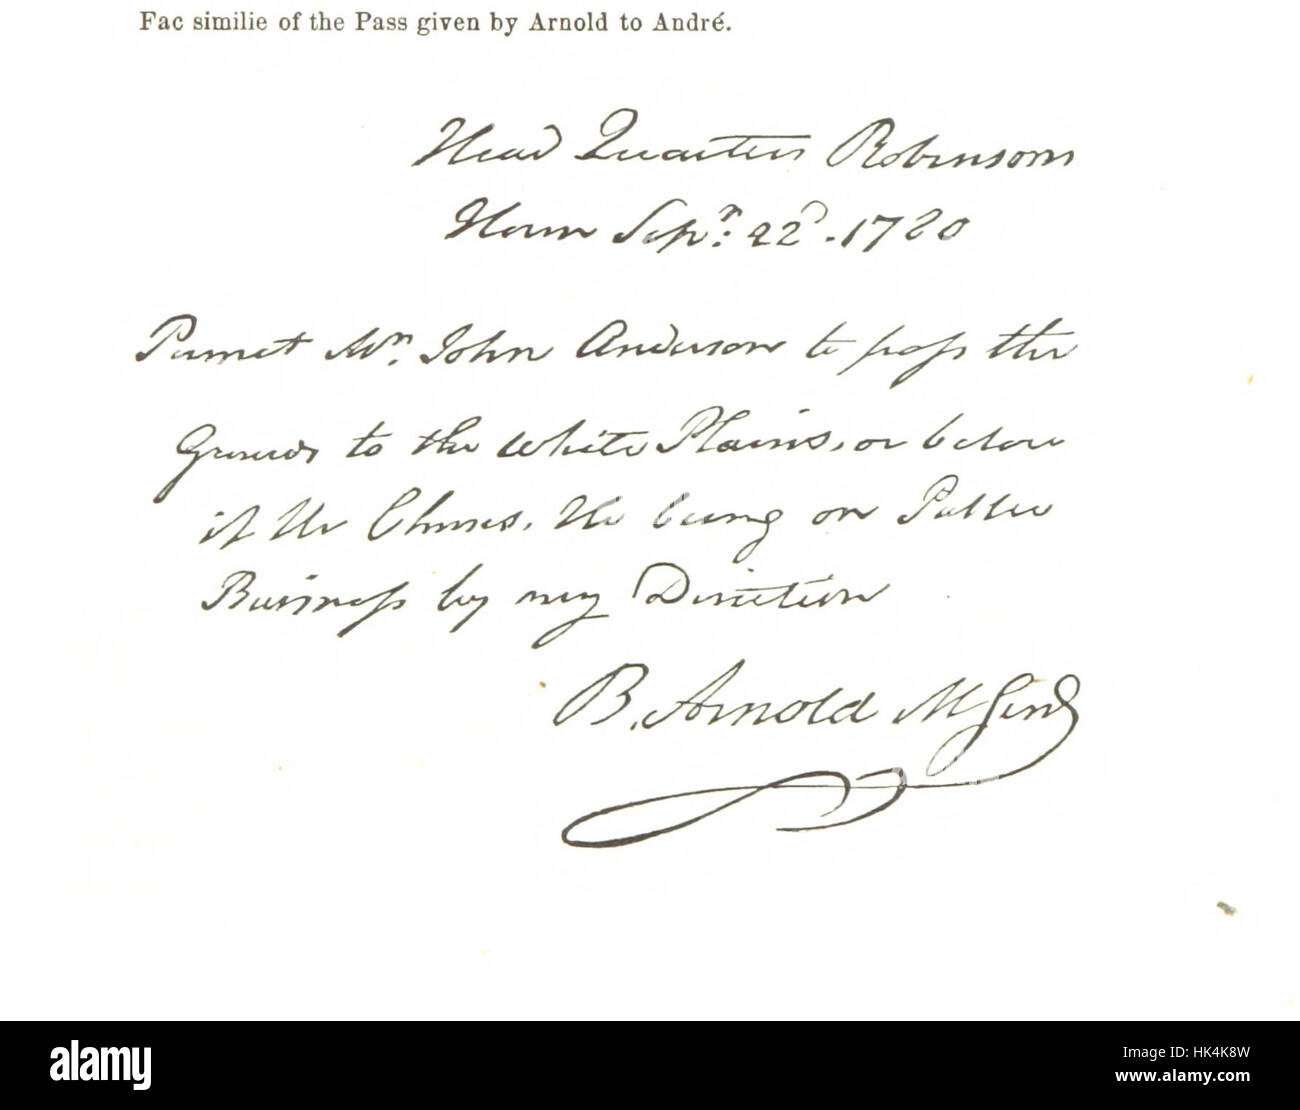 Fac similie of the Pass given by Arnold to André.
Head Quarters Robinsons
House Sepr. 22d. 1780
Permit Mr. John Anderson to pass the
Guards to the White Plains, or below
if He Chuses. He being on Public
Business by my Direction
B. Arnold M Genl
alamy
Image ID: HK4K8W
www.alamy.com